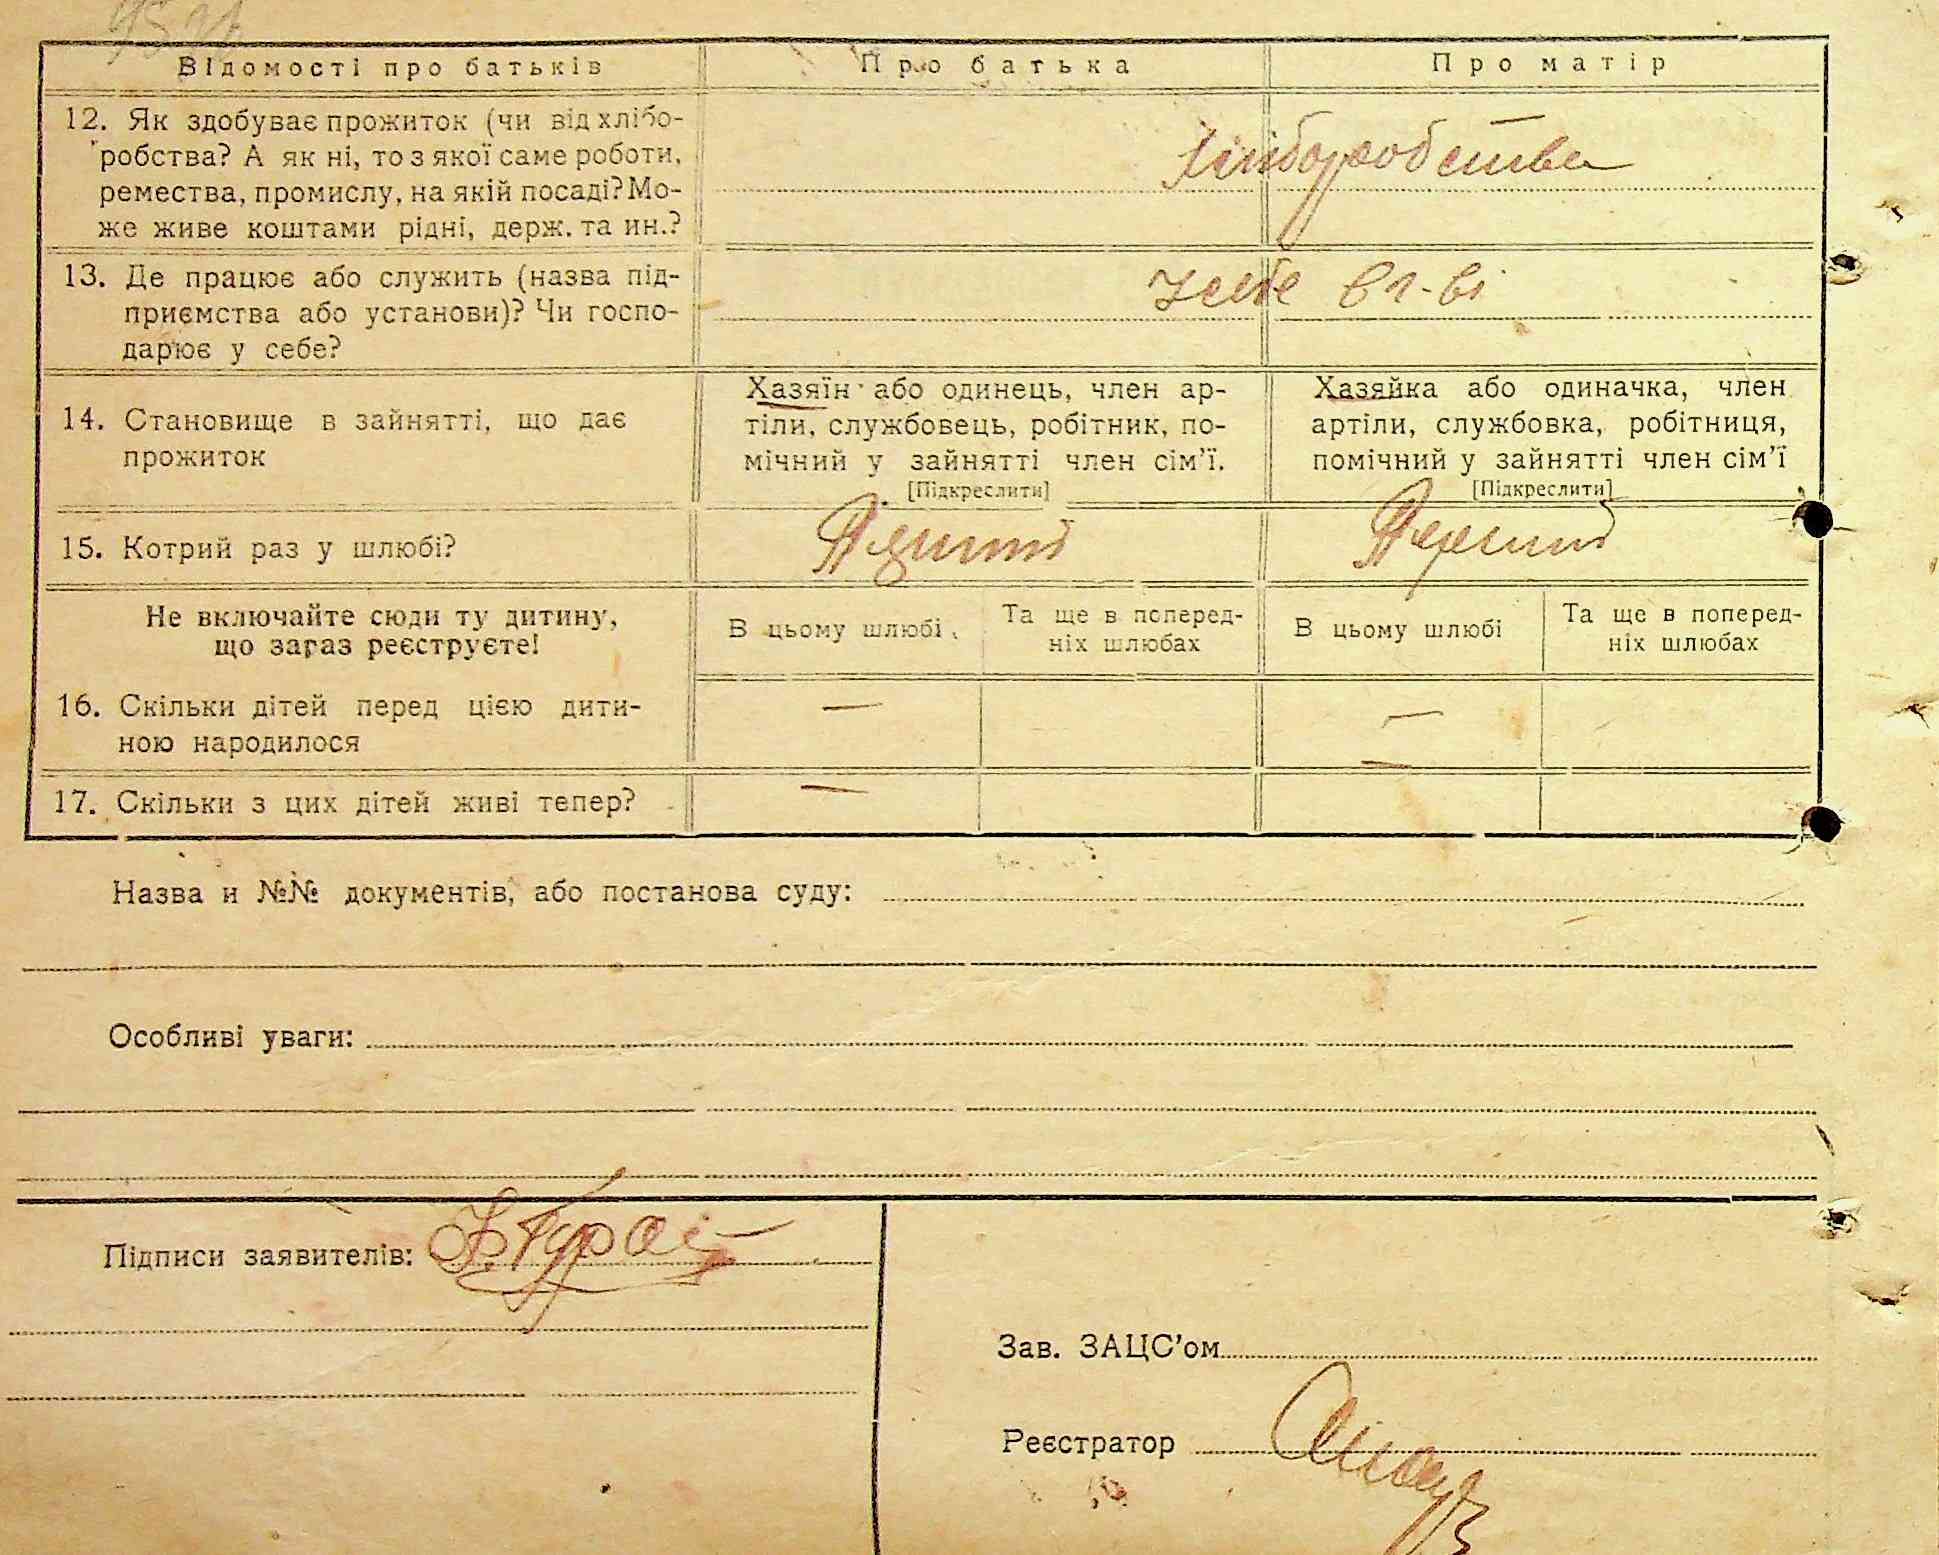 Відомості про батьків
Про батька
Про матір
12. Як здобуває прожиток (чи від хлібо-
робства? А як ні, то з якої саме роботи,
ремества, промислу, на якій посаді? Мо-
же живе коштами рідні, держ. та ин.?
Хліборобства
13. Де працює або служить (назва під-
приємства або установи)? Чи госпо-
дарює у себе?
У себе
14. Становище в зайнятті, що дає
прожиток
Хазяїн або одинець, член ар-
тіли, службовець, робітник, по-
мічний у зайнятті член сім'ї.
[Підкреслити]
Хазяйка або одиначка, член
артіли, службовка, робітниця,
помічний у зайнятті член сім'ї
[Підкреслити]
15. Котрий раз у шлюбі?
Перший
Перший
Не включайте сюди ту дитину,
що зараз реєструєте!
В цьому шлюбі
Та ще в поперед-
ніх шлюбах
В цьому шлюбі
Та ще в поперед-
ніх шлюбах
16. Скільки дітей перед цією дити-
ною народилося
—
—
17. Скільки з цих дітей живі тепер?
—
—
Назва и №№ документів, або постанова суду:
Особливі уваги:
Підписи заявителів:
Зав. ЗАЦС'ом
Реєстратор